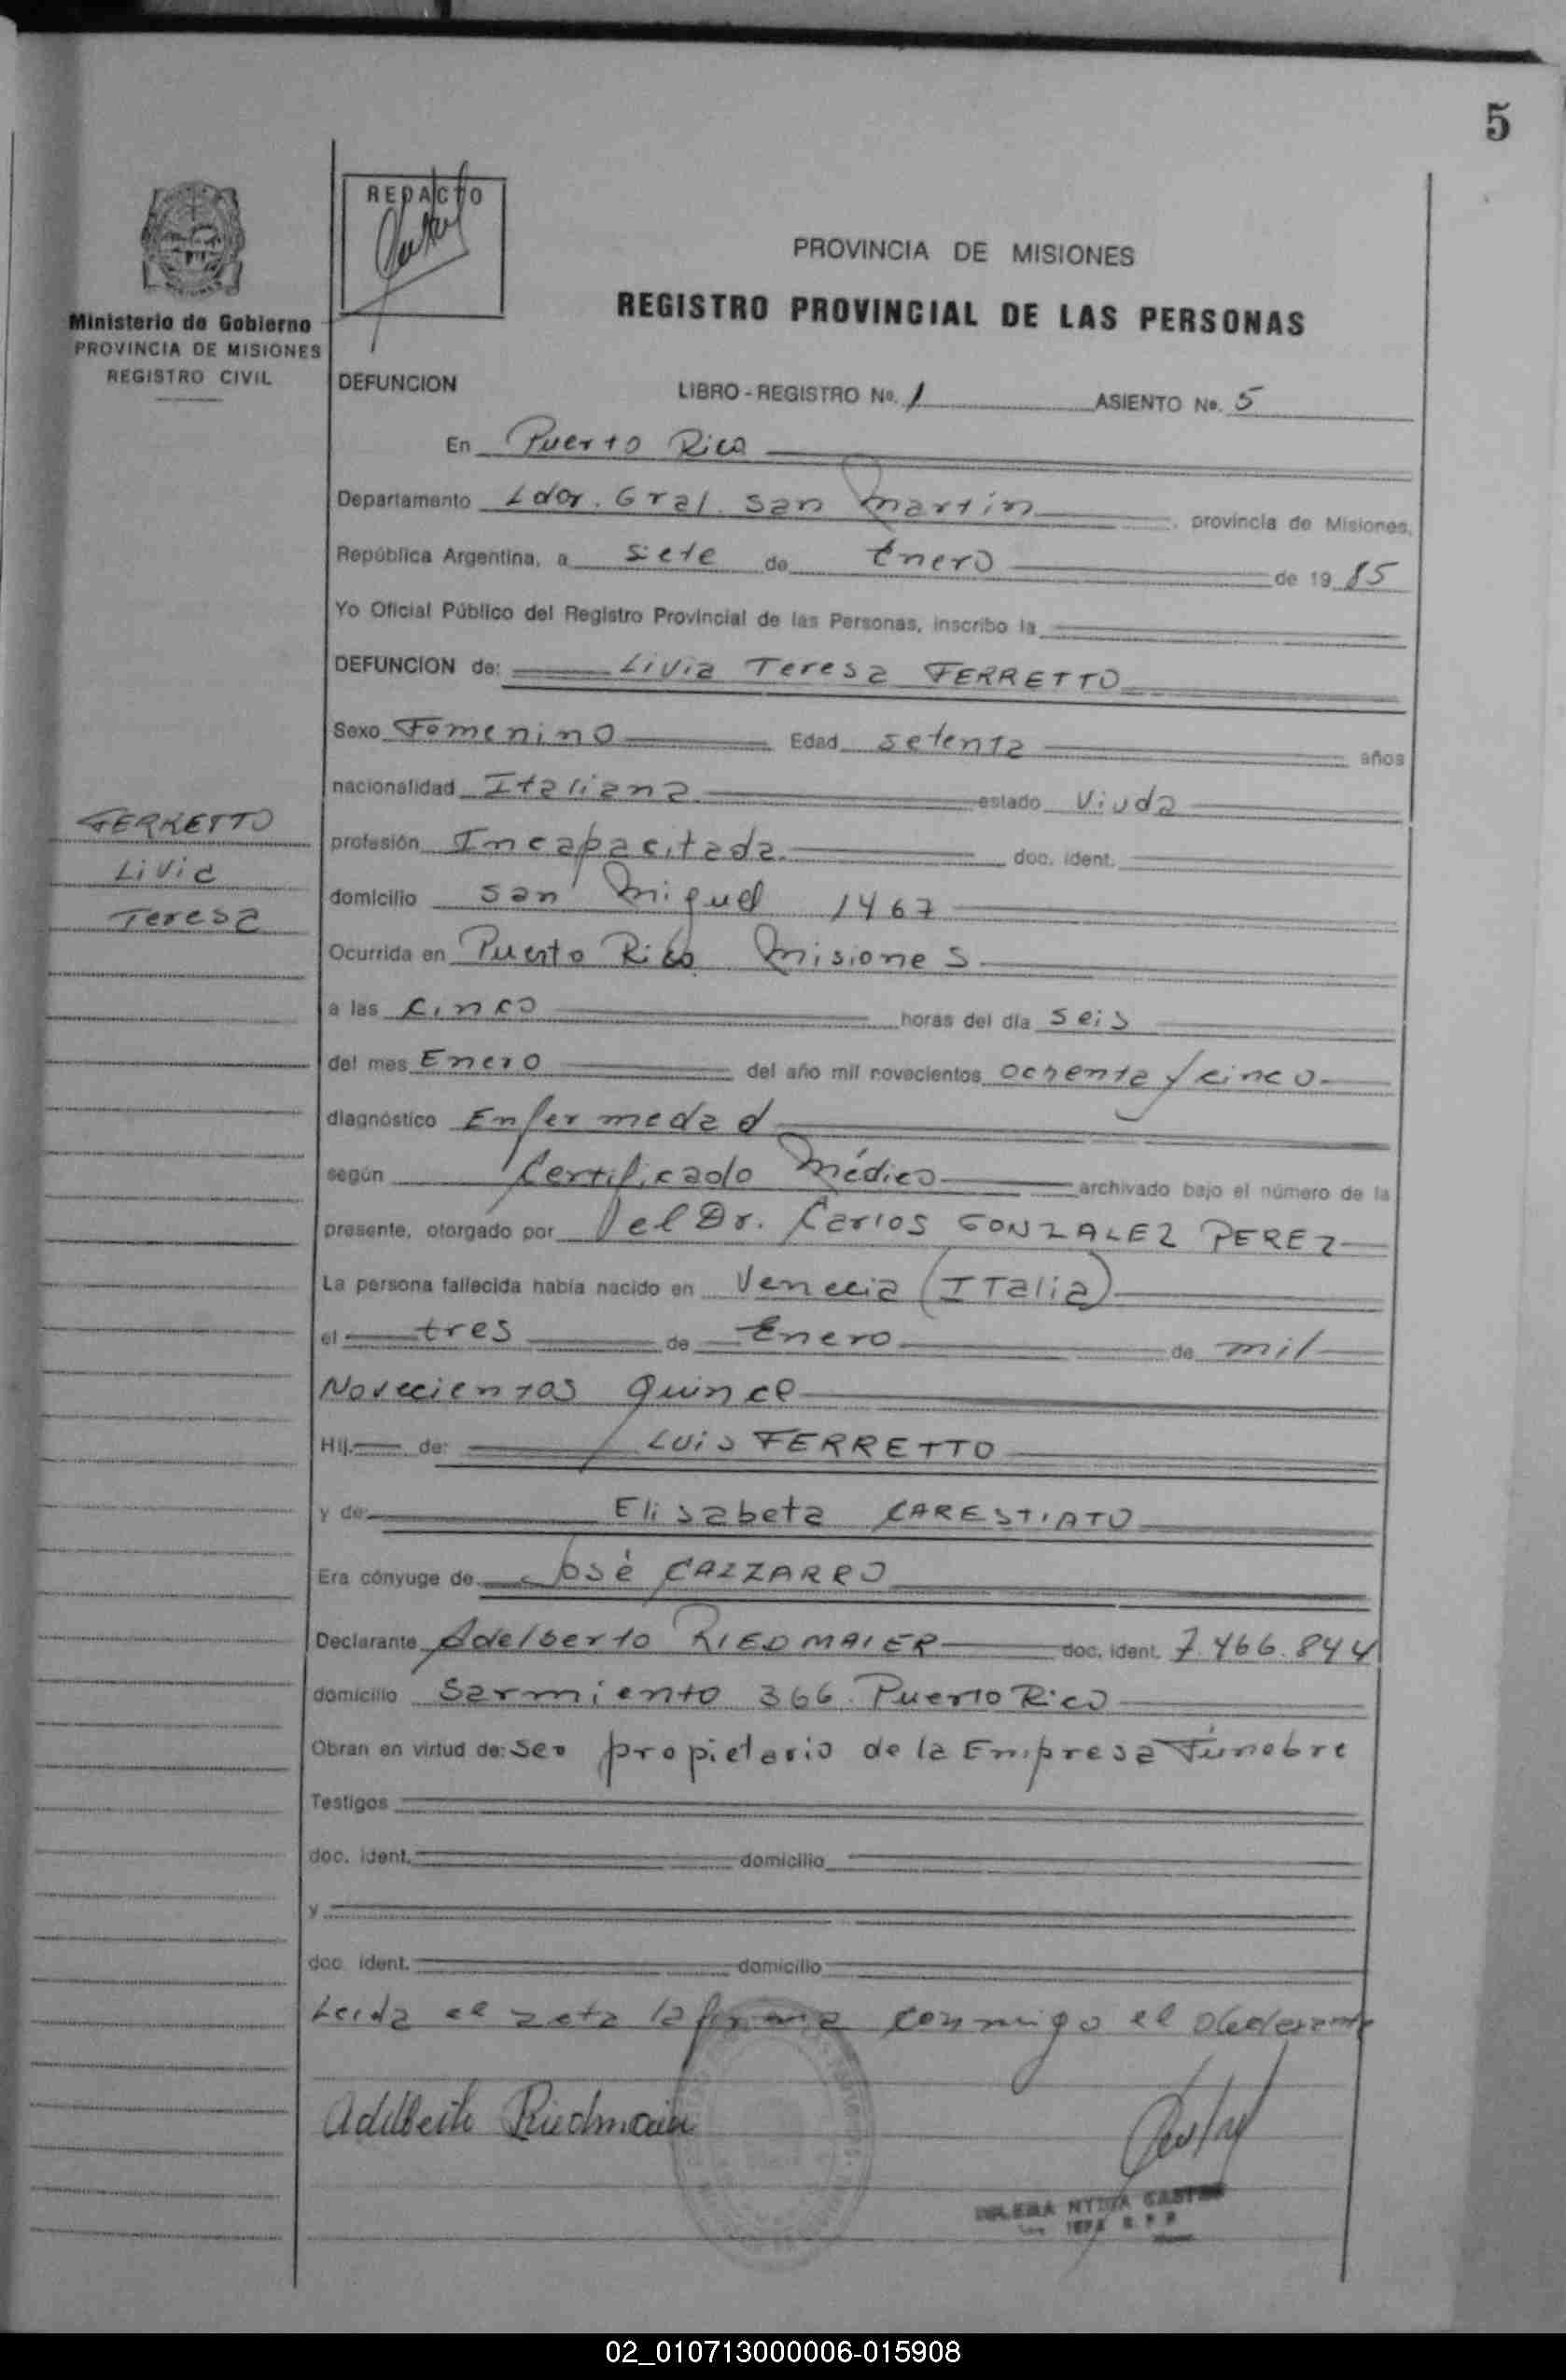 5
REDACTO
PROVINCIA DE MISIONES
REGISTRO PROVINCIAL DE LAS PERSONAS
Ministerio de Gobierno
PROVINCIA DE MISIONES
REGISTRO CIVIL
DEFUNCION LIBRO - REGISTRO Nº. 1 ASIENTO Nº. 5
En Puerto Rico
Departamento Ldor. Gral. San Martín, provincia de Misiones,
República Argentina, a siete de Enero de 19 85
Yo Oficial Público del Registro Provincial de las Personas, inscribo la
DEFUNCION de: Livia Teresa FERRETTO
Sexo Femenino Edad setenta años
nacionalidad Italiana estado Viuda
FERRETTO
Livia
Teresa
profesión Incapacitada. doc. ident.
domicilio San Miguel 1467
Ocurrida en Puerto Rico Misiones.
a las cinco horas del día seis
del mes Enero del año mil novecientos ochenta y cinco
diagnóstico Enfermedad
según Certificado Médico archivado bajo el número de la
presente, otorgado por Del Dr. Carlos GONZALEZ PEREZ
La persona fallecida había nacido en Venecia (ITalia)
el tres de Enero de mil
Novecientos quince
Hij de: Luis FERRETTO
y de: Elisabeta CARESTIATO
Era cónyuge de José CAZZARRO
Declarante Adelberto RIEDMAIER doc. ident. 7.466.844
domicilio Sarmiento 366. Puerto Rico
Obran en virtud de: Ser propietario de la Empresa Fúnebre
Testigos
doc. ident. domicilio
y
doc. ident. domicilio
Leída el acta la firma conmigo el
Adelberto Riedmaier
NYDIA CASTRO
02_010713000006-015908